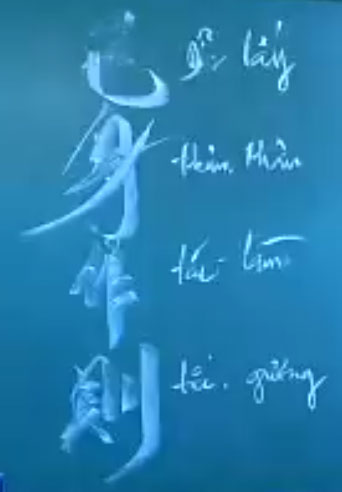 以 dĩ: lấy
身 thân. thân
作 tác: làm
則 tắc. gương